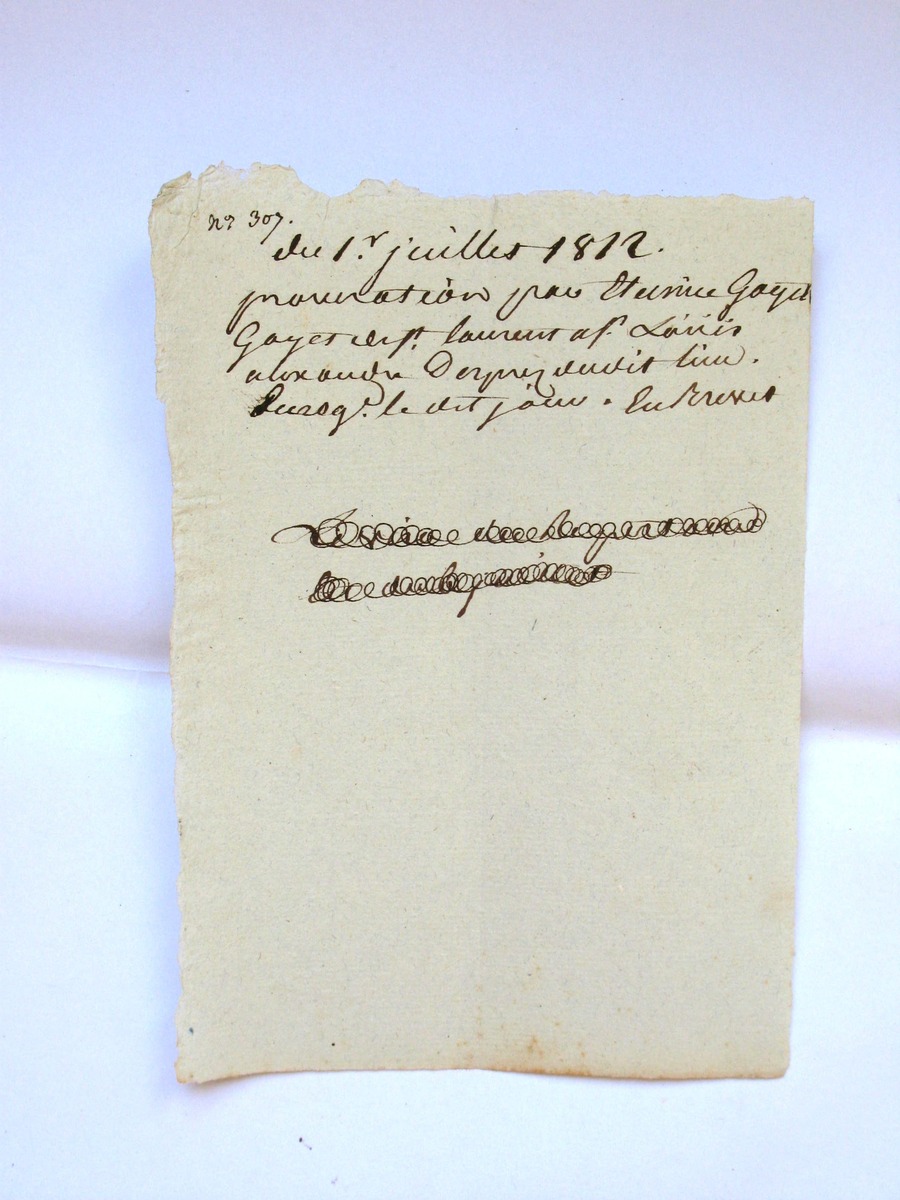 nº 307.
du 1.r juillet 1812.
procuration par Etienne Gayet
Gayet de st. laurent a sr. Louis
alexandre Desprez dudit lieu.
Enregt. le dit jour. En Brevet